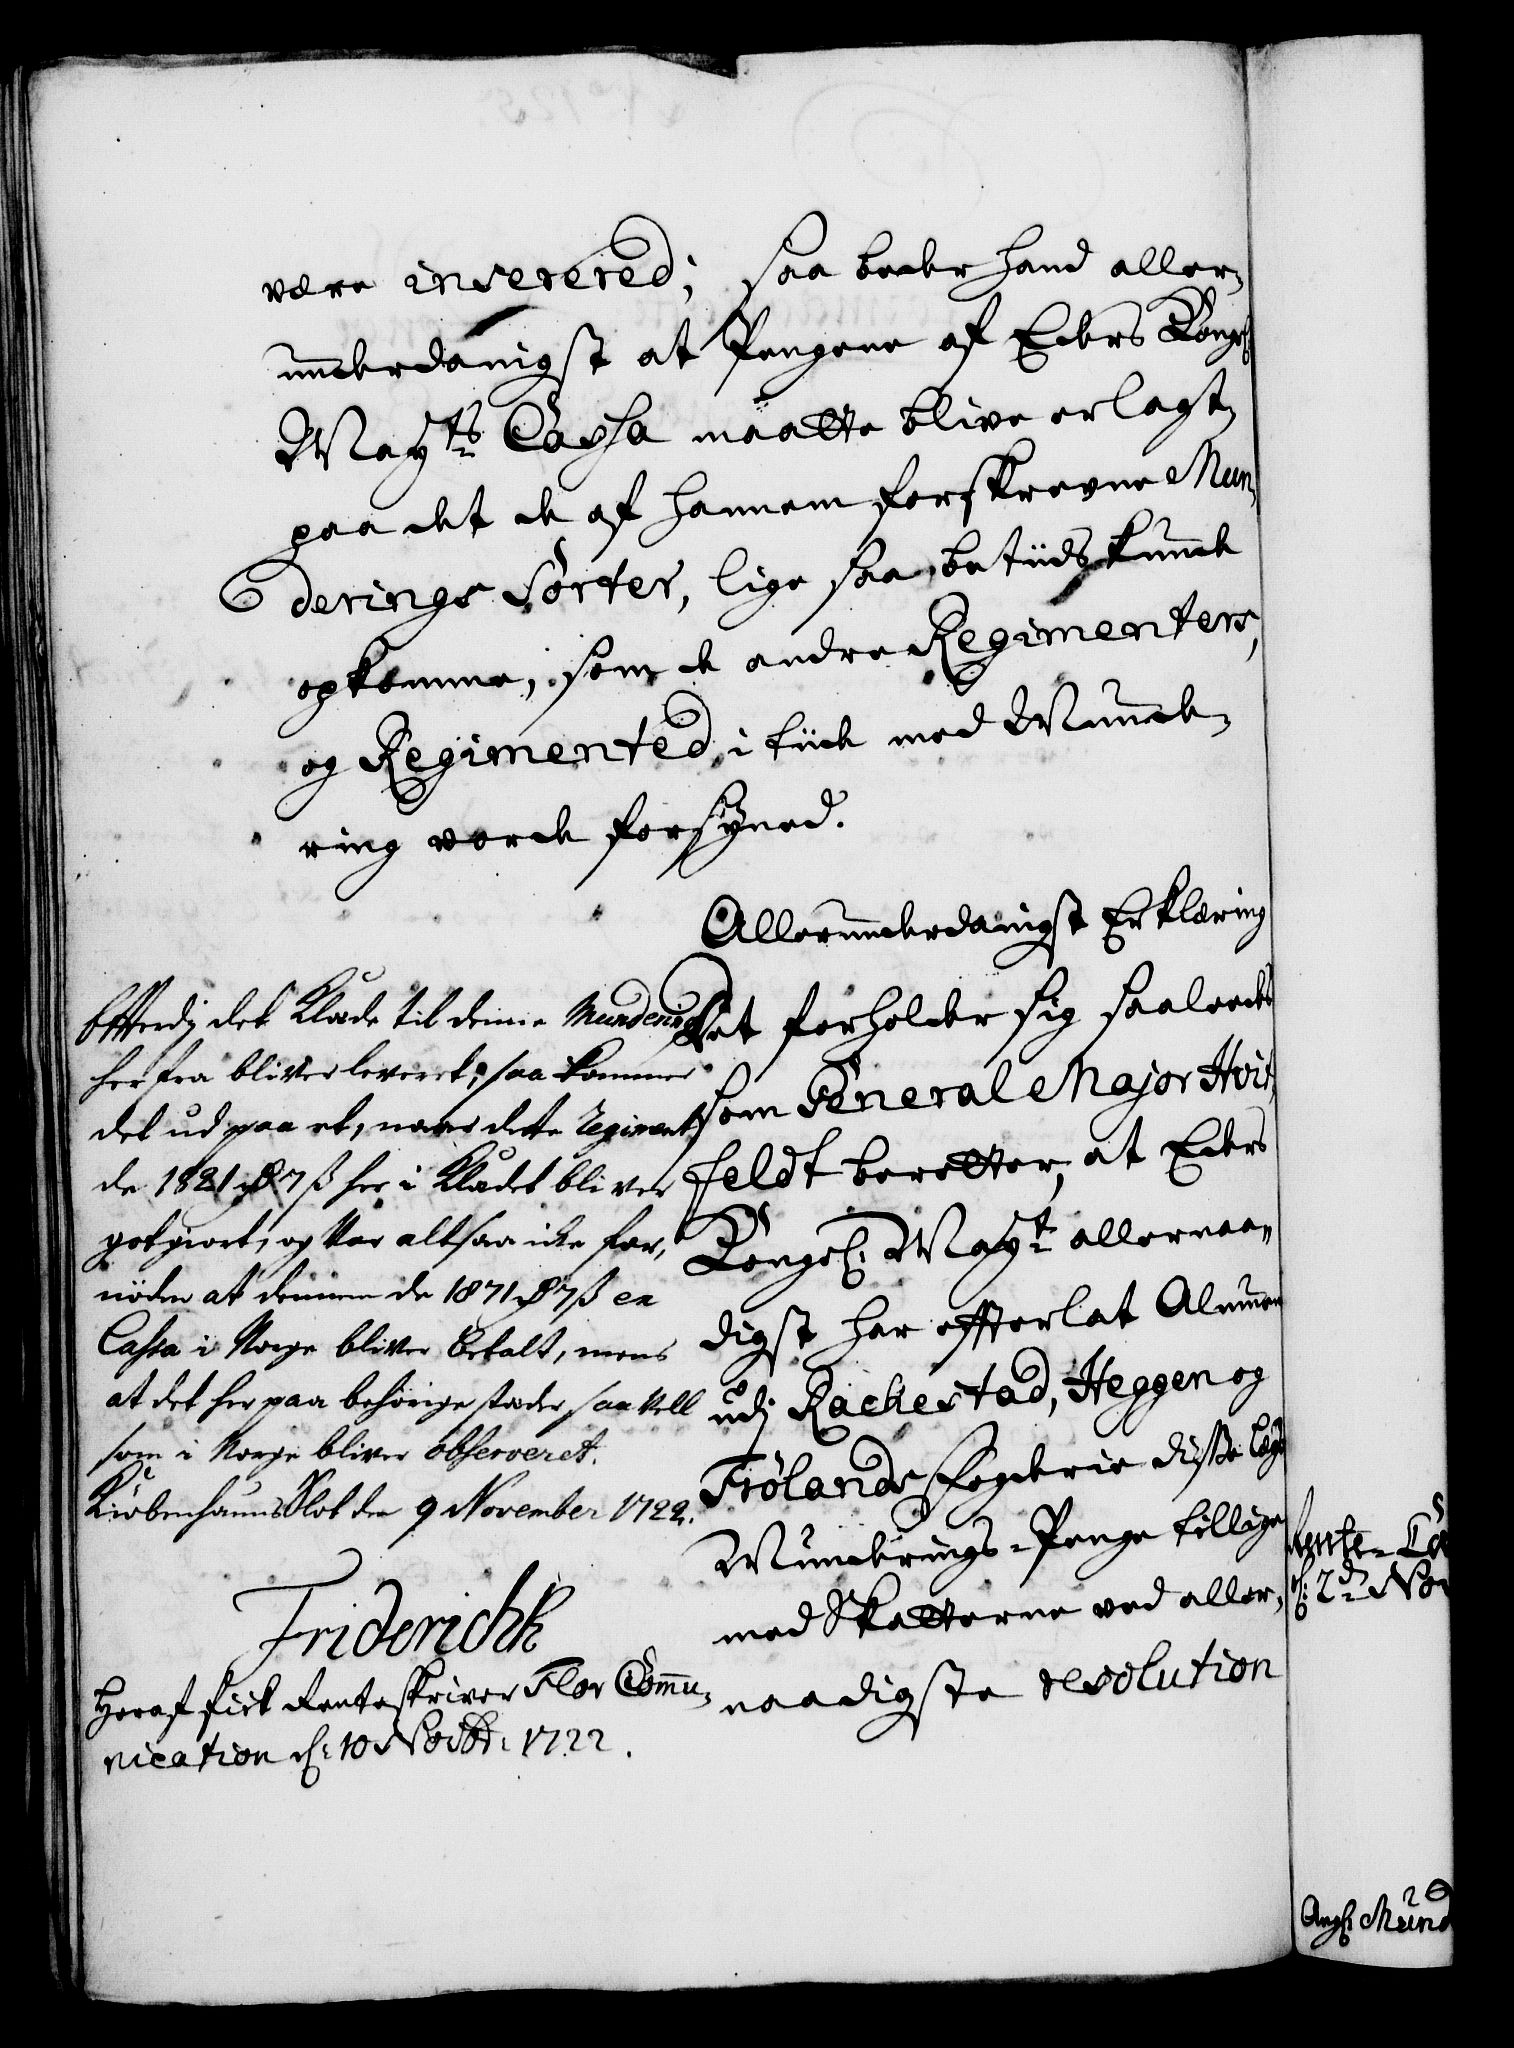 være inserered; saa beder hand aller-
underdanigst at Pengene af Eders Kongl
Mayts Cassa maatte blive erlagt,
paa det de af hannem forskrevne Mun-
derings Sorter, lige saa betiids kunde
opkomme, som de andre Regimenters,
og Regimented i tiide med Munde-
ring vorde forsÿned.
Allerunderdanigst Erklæring
Det forholder sig saaledes
som General Major Hvit-
feldt beretter, at Eders
Kongel: Mayt allernaa-
digst har efterlat Almuen
udj Rackestad, Heggen og
Frölands Fogderie disse Lægs
Munderings-Penge tillige
med Skatterne ved aller-
naadigste resolution
Effterdj det Klæde til denne Mundering
her fra bliver leveret, saa kommer
det ud paa et, naar dette Regiment
de 1821 rd 7 ß her i Klædet bliver
gotgiort, og var altsaa icke for-
nöden at dennem de 1871 rd 7 ß ex
Cassa i Norge bliver betalt, mens
at det her paa behörige stæder saa vell
som i Norge bliver observeret.
KiöbenhaunsSlot den 9 November 1722.
Friderichk
Heraf fick Renteskriver Flor Commu-
nication d: 10 Novbr: 1722.
Rente-Ca
d: 2d Nov
26
Angl: Mund